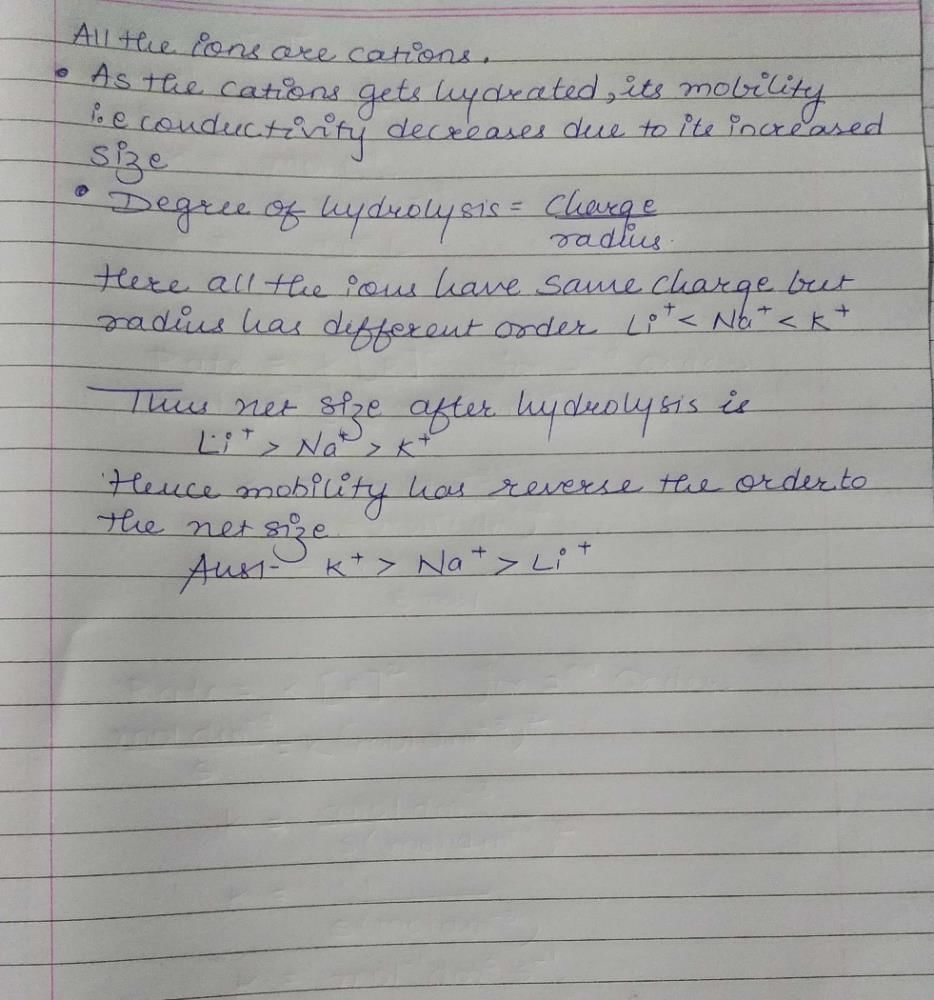 All the ions are cations.
• As the cations gets hydrated, its mobility
i.e conductivity decreases due to its increased
size
• Degree of hydrolysis = Charge
radius.
Here all the ions have same charge but
radius has different order Li⁺ < Na⁺ < K⁺
Thus net size after hydrolysis is
Li⁺ > Na⁺ > K⁺
Hence mobility has reverse the order to
the net size
Ans:- K⁺ > Na⁺ > Li⁺